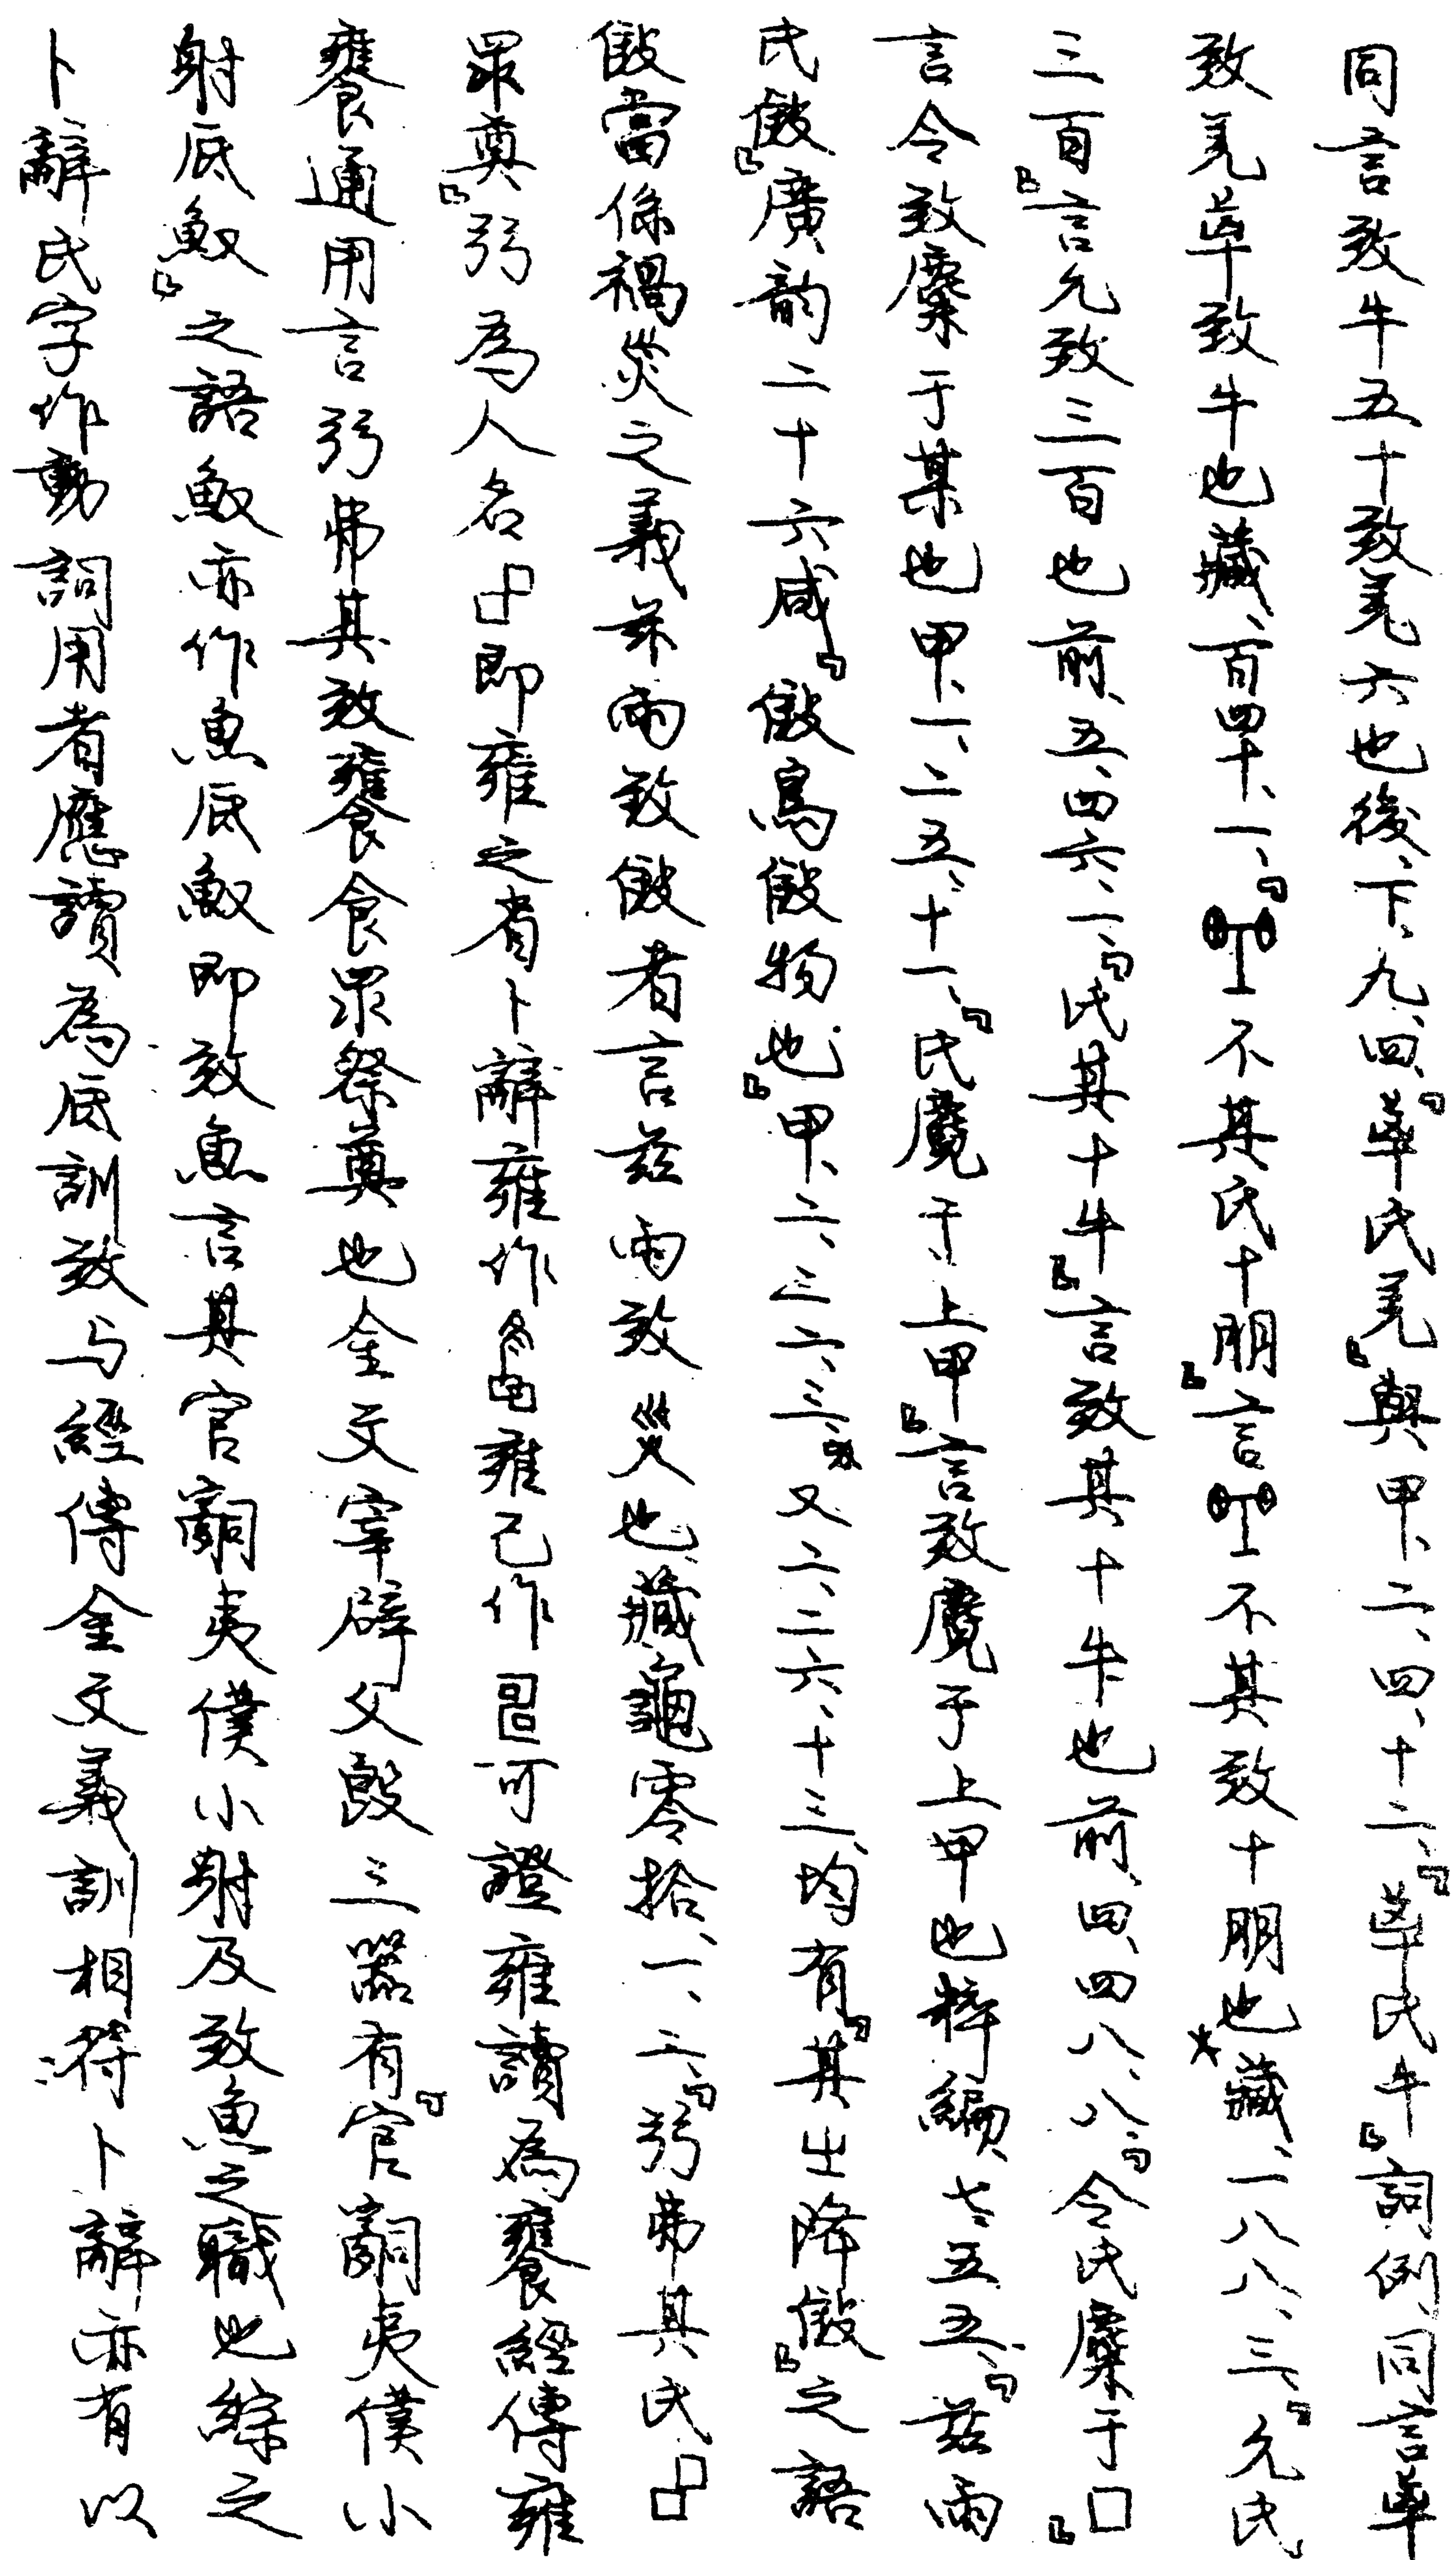 同言致牛五十致羌六也後、下、九、四、「𠦪氏羌」與甲、二、四、十二、「𠦪氏牛」詞例同言𠦪
致羌𠦪致牛也藏、百四十、一、「不其氏十朋」言不其致十朋也藏、一八八、三、「允氏
三百」言允致三百也前、五、四六、一、「氏其十牛」言致其十牛也前、四、四八、八、「令氏麋于□」
言令致麋于某也甲、一、二五、十一、「氏𪋦于上甲」言致𪋦于上甲也粹編、七五五、「茲雨
氏𠎷」廣韵二十六咸「𠎷鳥𠎷物也」甲、六、三六、三、又二、二六、十三、均有「其㞢降𠎷」之語
𠎷當係禍災之義茲雨致𠎷者言茲雨致災也藏龜零拾、一、二、「弜弗其氏
眔奠」弜為人名即雍之省卜辭雍作雍己作可證雍讀為饔經傳雍
饔通用言弜弗其致饔食眔祭奠也金文宰辟父𣪘三器有「官𤔲夷僕小
射底𩵎」之語𩵎亦作魚底𩵎即致魚言其官𤔲夷僕小射及致魚之職也綜之
卜辭氏字作動詞用者應讀為底訓致与經傳金文義訓相符卜辭亦有以